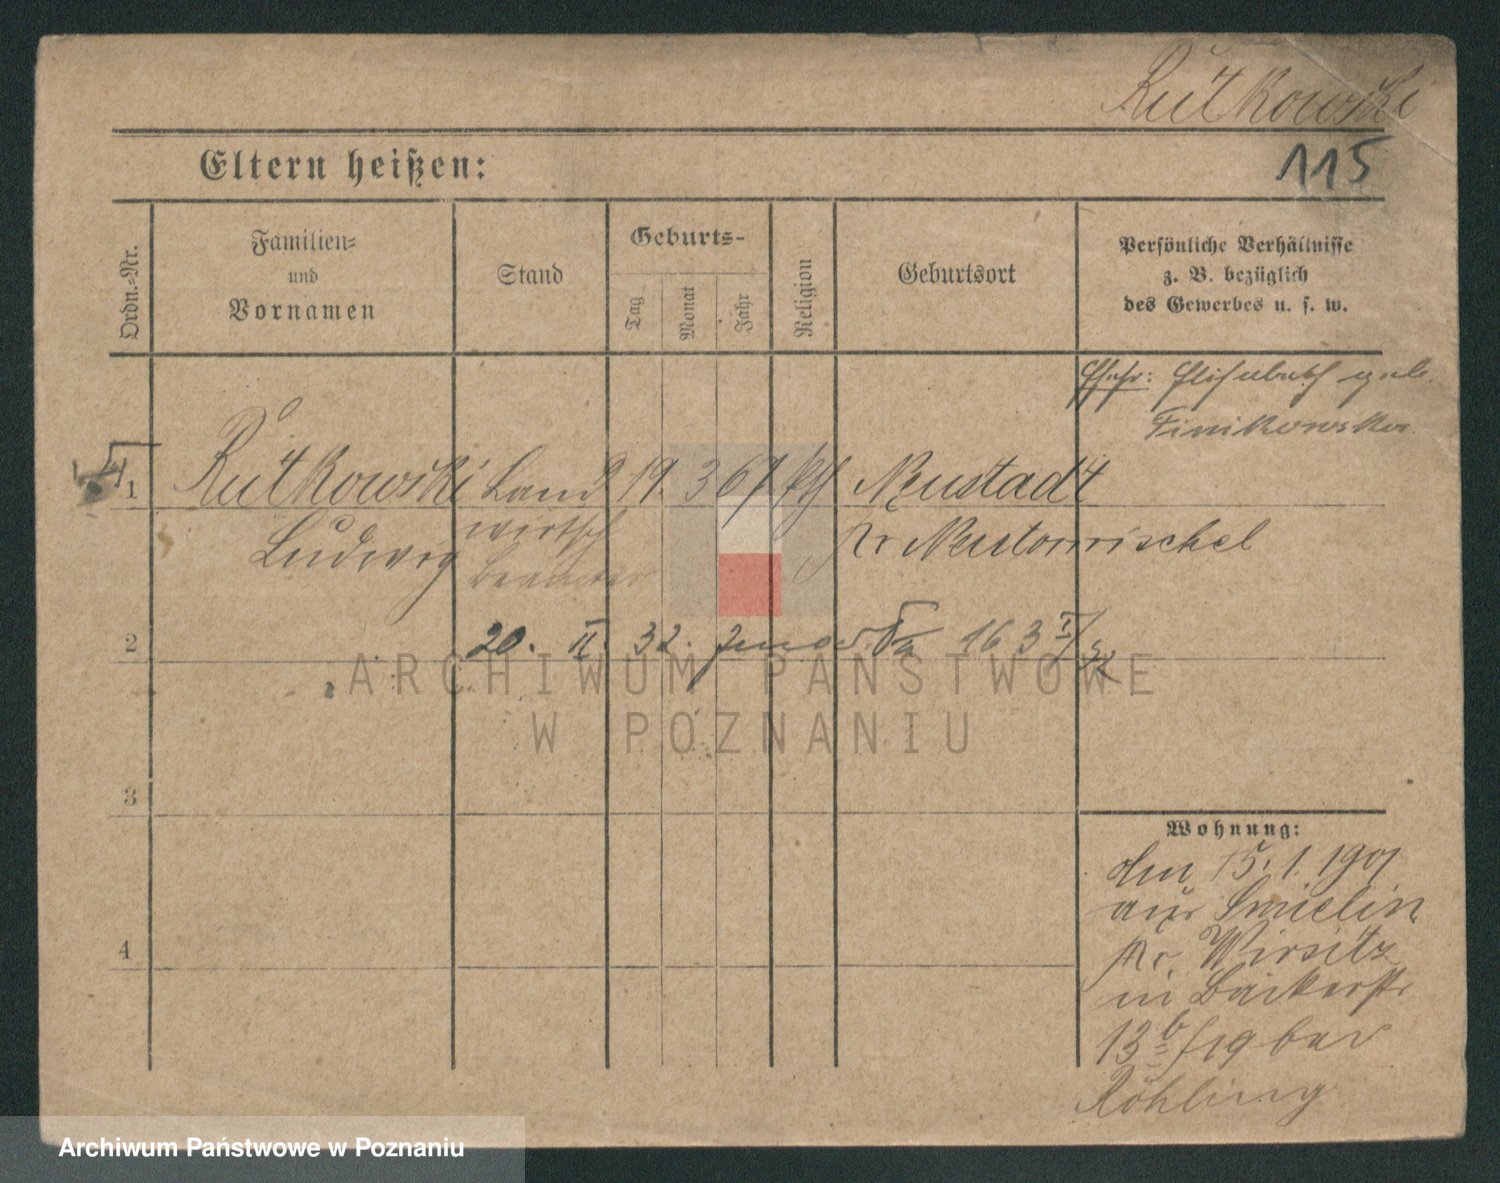 Rutkowski
Eltern heißen:
115
Ordn.-Nr.
Familien-
und
Vornamen
Stand
Geburts-
Tag
Monat
Jahr
Religion
Geburtsort
Persönliche Verhältnisse
z. B. bezüglich
des Gewerbes u. s. w.
Ehefr: Elisabeth geb.
Finikowska
1
Rutkowski Land 19. 3 67 kth Neustadt
Ludwig wirtsch Kr Neutomischel
Beamter
2
20. II. 32. 163
ARCHIWUM PAŃSTWOWE
W POZNANIU
3
Wohnung:
den 15. 1. 1901
aus Smielin
Kr. Wirsitz
in Bäckerstr
13b bei
Röhling
4
Archiwum Państwowe w Poznaniu